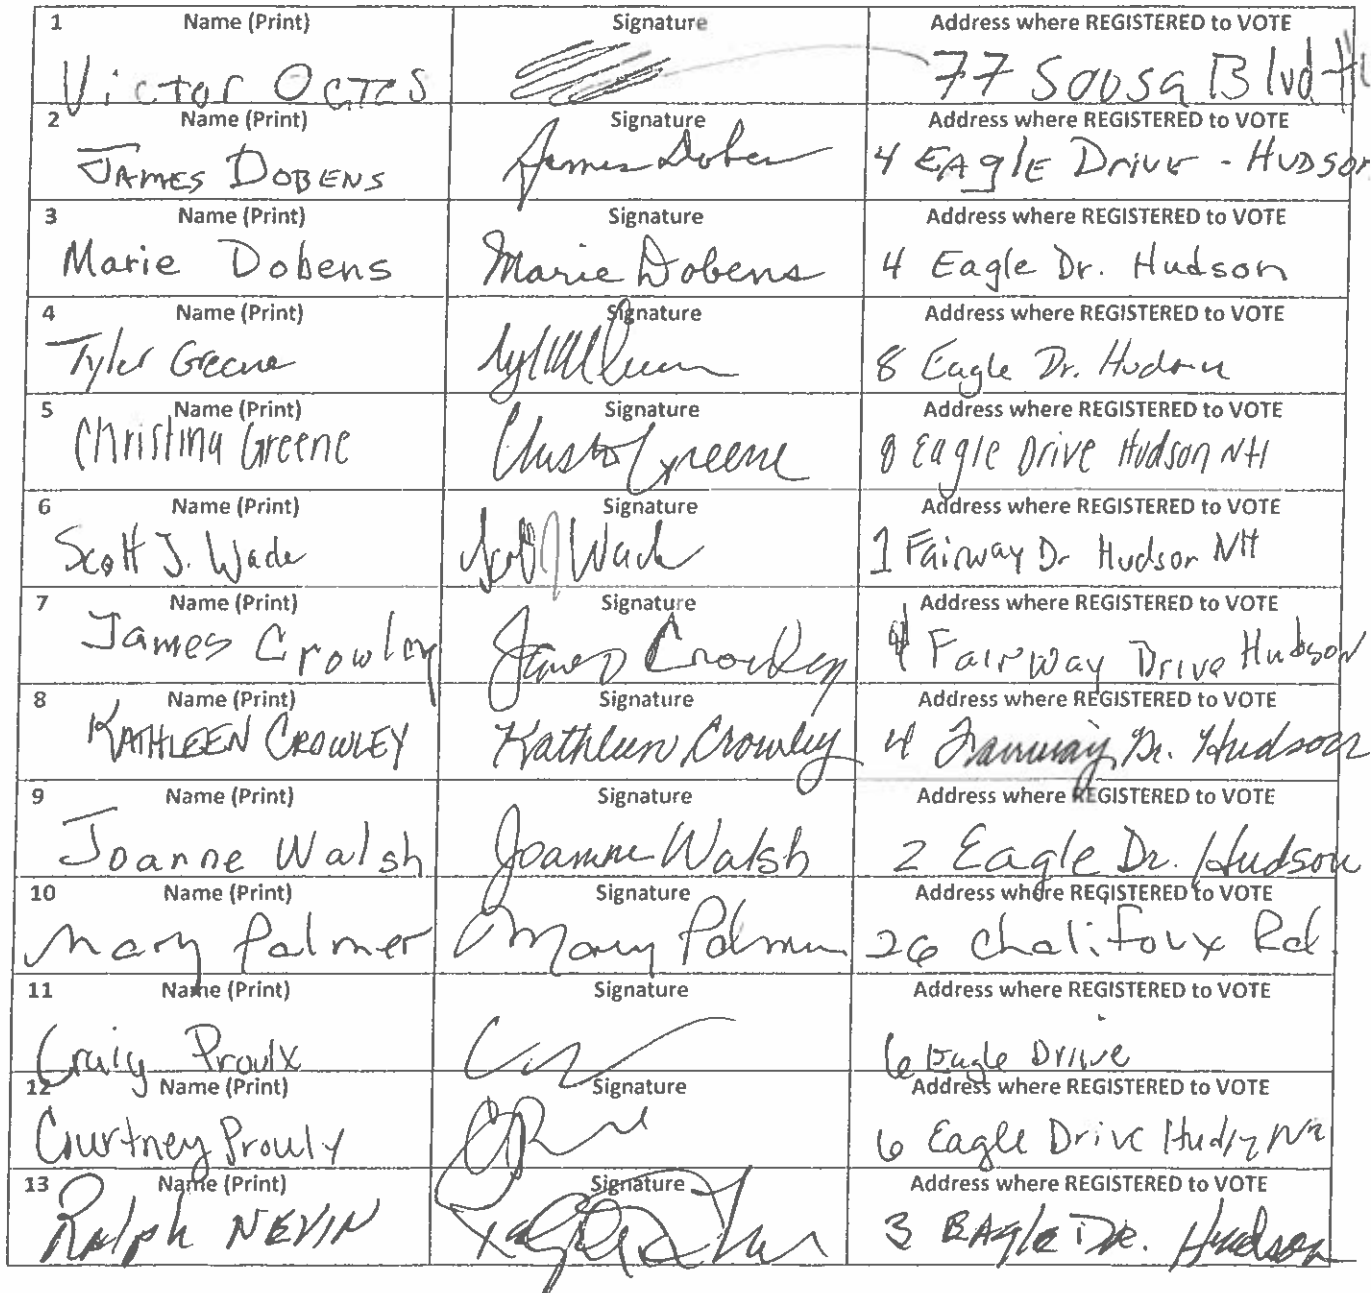 1 Name (Print) Signature Address where REGISTERED to VOTE
Victor Octes 77 Sousa Blvd
2 Name (Print) Signature Address where REGISTERED to VOTE
JAMES DOBENS James Doben 4 EAglE Drive - HUDSON
3 Name (Print) Signature Address where REGISTERED to VOTE
Marie Dobens Marie Dobens 4 Eagle Dr. Hudson
4 Name (Print) Signature Address where REGISTERED to VOTE
Tyler Greene 8 Eagle Dr. Hudson
5 Name (Print) Signature Address where REGISTERED to VOTE
Christina Greene Christa Greene 8 Eagle Drive Hudson NH
6 Name (Print) Signature Address where REGISTERED to VOTE
Scott J. Wade Scott J Wade 1 Fairway Dr Hudson NH
7 Name (Print) Signature Address where REGISTERED to VOTE
James Crowley James Crowley 4 Fairway Drive Hudson
8 Name (Print) Signature Address where REGISTERED to VOTE
KATHLEEN CROWLEY Kathleen Crowley 4 Fairway Dr. Hudson
9 Name (Print) Signature Address where REGISTERED to VOTE
Joanne Walsh Joanne Walsh 2 Eagle Dr. Hudson
10 Name (Print) Signature Address where REGISTERED to VOTE
Mary Palmer Mary Palmer 26 Chalifoux Rd.
11 Name (Print) Signature Address where REGISTERED to VOTE
Craig Proulx 6 Eagle Drive
12 Name (Print) Signature Address where REGISTERED to VOTE
Courtney Proulx 6 Eagle Drive Hudson NH
13 Name (Print) Signature Address where REGISTERED to VOTE
Ralph NEVIN 3 EAgle Dr. Hudson